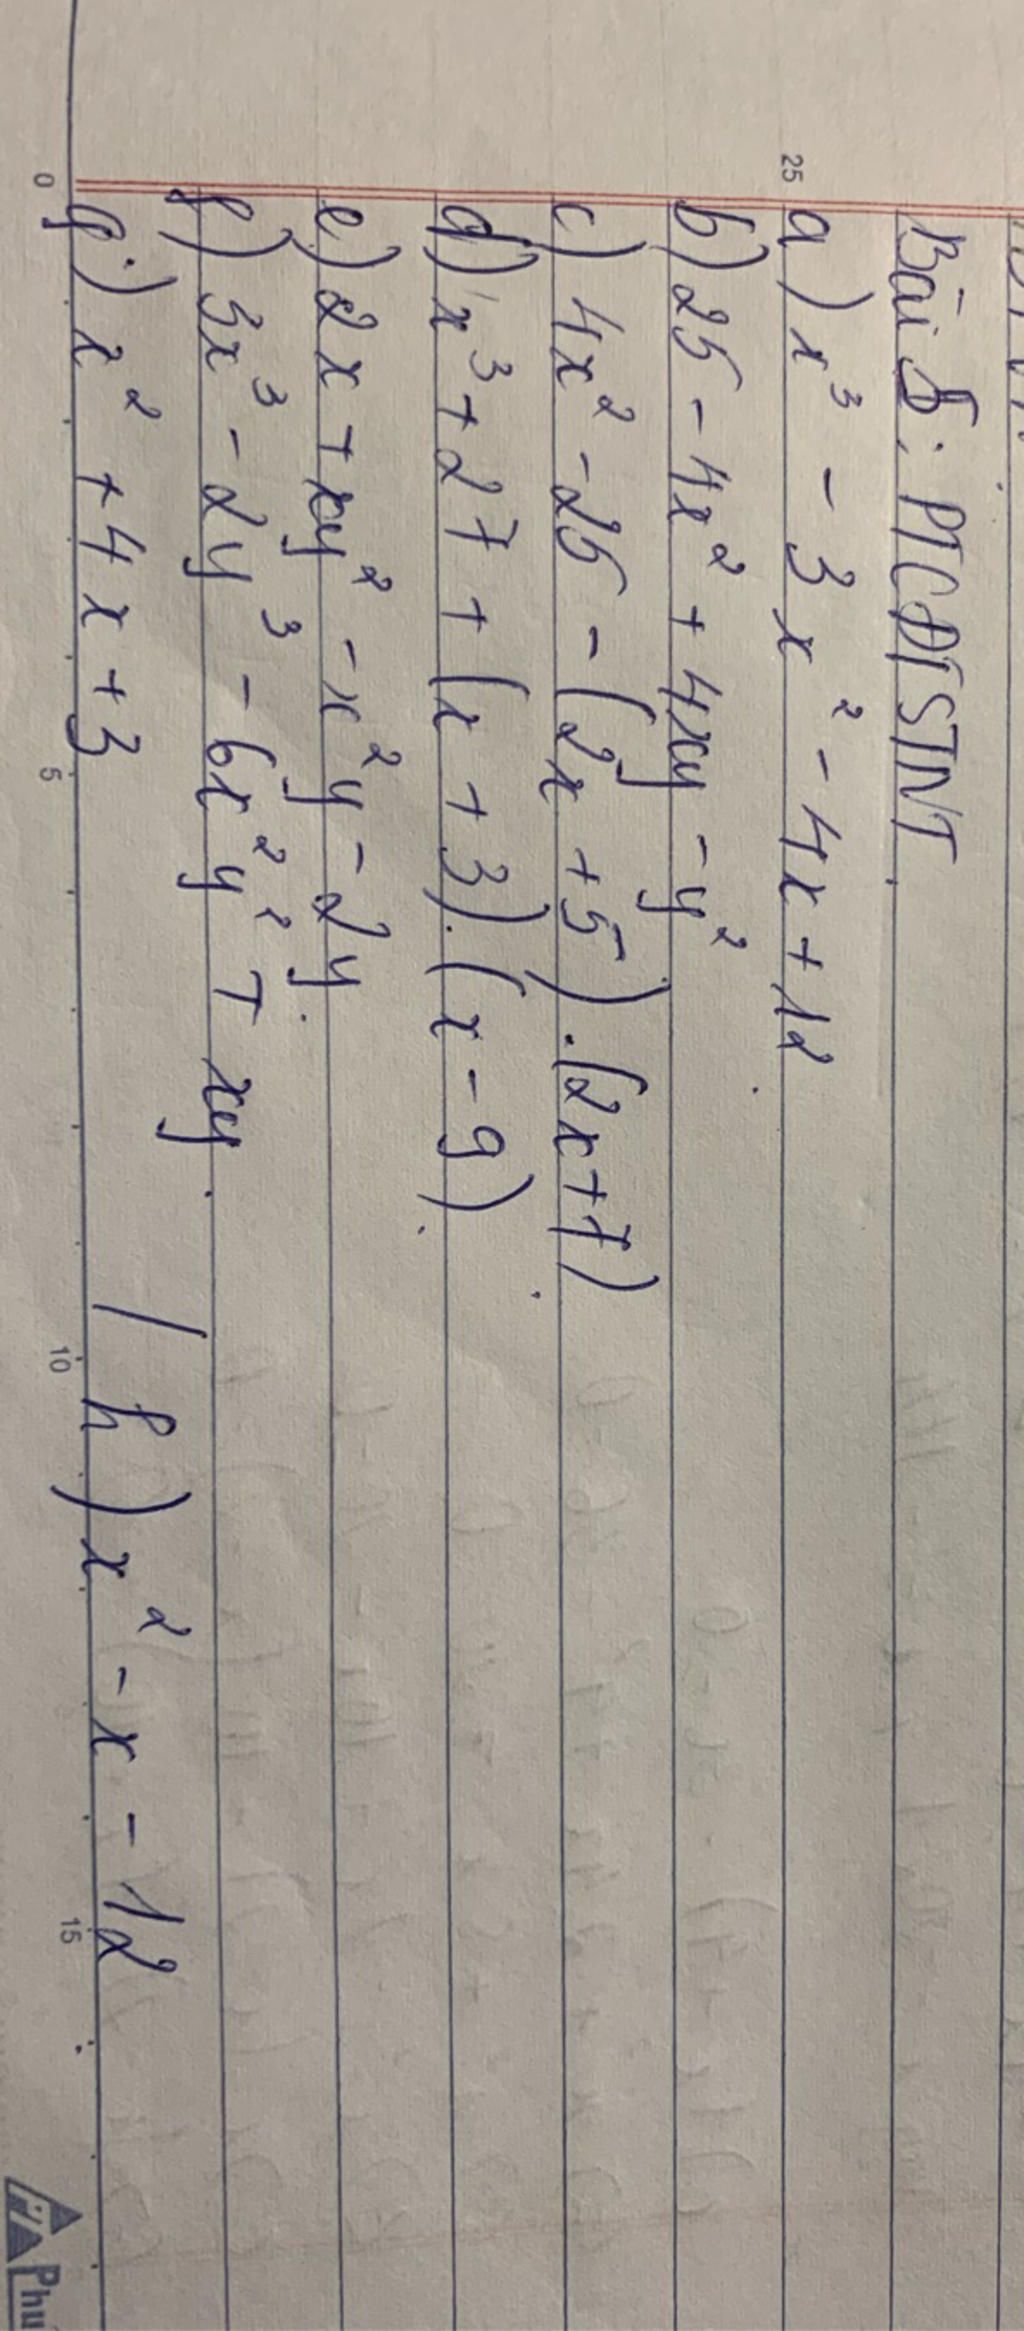 Bài 5: PTCĐTSTNT.
a) x³ - 3x² - 4x + 12
b) 25 - 4x² + 4xy - y²
c) 4x² - 25 - (2x + 5).(2x + 7)
d) x³ + 27 + (x + 3).(x - 9)
e) 2x + xy² - x²y - 2y
f) 3x³ - 2y³ - 6x²y² + xy.
g) x² + 4x + 3 / h) x² - x - 12
25
0 5 10 15
Phu